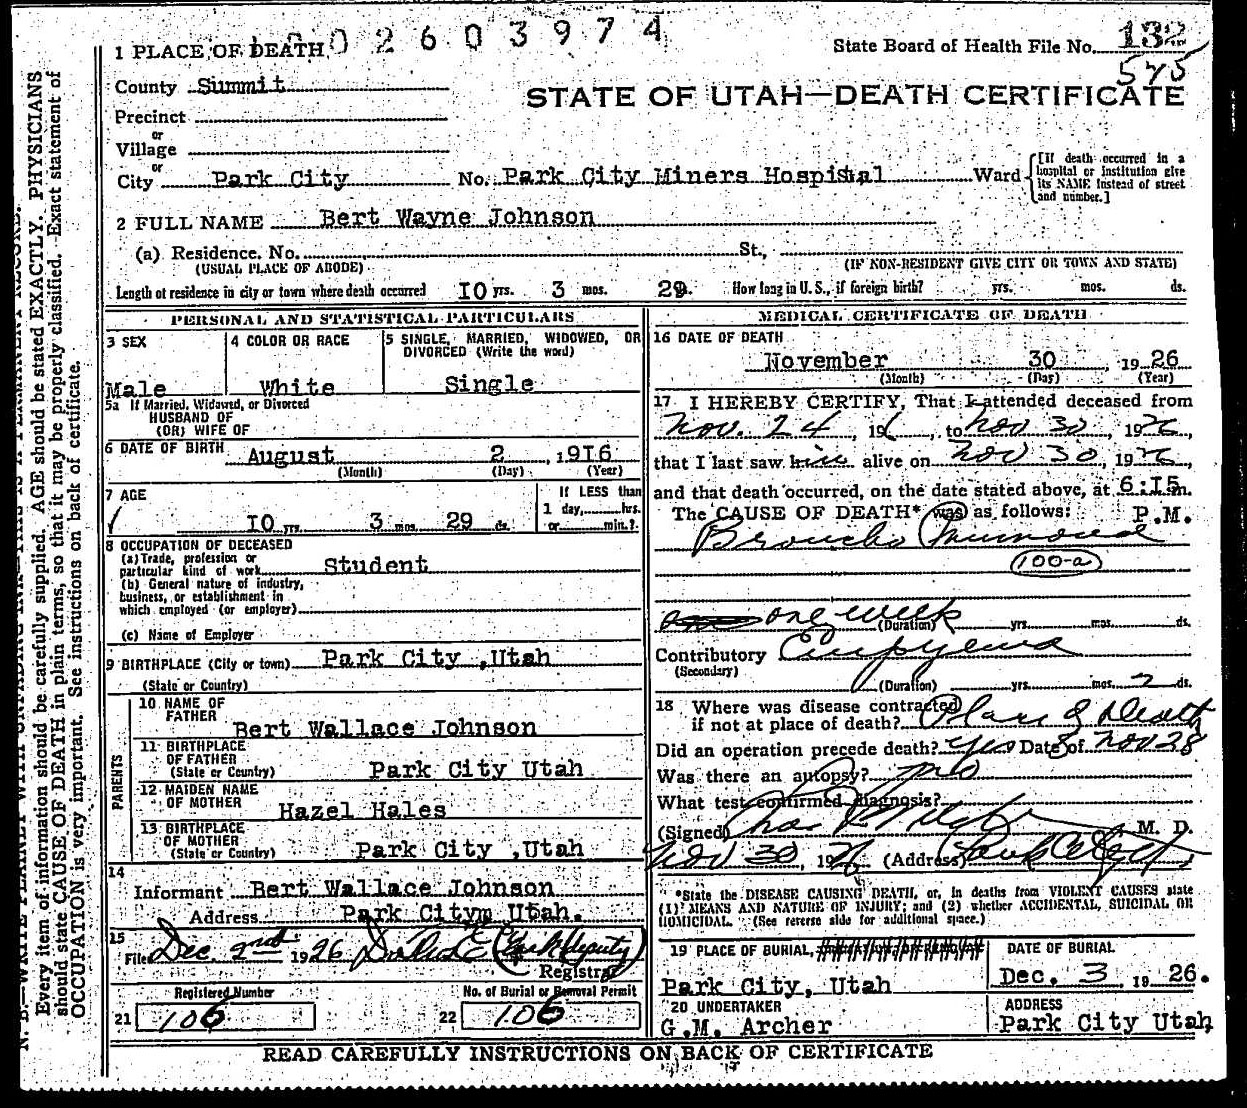 0 2 6 0 3 9 7 4
1 PLACE OF DEATH
State Board of Health File No. 132
575
County Summit
STATE OF UTAH—DEATH CERTIFICATE
Precinct
or
Village
or
City Park City No. Park City Miners Hospital Ward
[If death occurred in a hospital or institution give its NAME instead of street and number.]
2 FULL NAME Bert Wayne Johnson
(a) Residence. No. St.,
(USUAL PLACE OF ABODE) (IF NON-RESIDENT GIVE CITY OR TOWN AND STATE)
Length of residence in city or town where death occurred 10 yrs. 3 mos. 29 How long in U. S., if foreign birth? yrs. mos. ds.
PERSONAL AND STATISTICAL PARTICULARS
3 SEX
Male
4 COLOR OR RACE
White
5 SINGLE, MARRIED, WIDOWED, OR DIVORCED (Write the word)
Single
5a If Married, Widowed, or Divorced
HUSBAND OF
(OR) WIFE OF
6 DATE OF BIRTH August 2, 1916
(Month) (Day) (Year)
7 AGE
10 yrs. 3 mos. 29 ds.
If LESS than
1 day, hrs.
or min.?
8 OCCUPATION OF DECEASED
(a) Trade, profession or
particular kind of work Student
(b) General nature of industry,
business, or establishment in
which employed (or employer)
(c) Name of Employer
9 BIRTHPLACE (City or town) Park City ,Utah
(State or Country)
PARENTS
10 NAME OF
FATHER
Bert Wallace Johnson
11 BIRTHPLACE
OF FATHER
(State or Country) Park City Utah
12 MAIDEN NAME
OF MOTHER
Hazel Hales
13 BIRTHPLACE
OF MOTHER
(State or Country) Park City ,Utah
14
Informant Bert Wallace Johnson
Address Park Citym Utah.
15
Filed Dec. 2nd 1926
Registrar
Registered Number
21 106
No. of Burial or Removal Permit
22 106
MEDICAL CERTIFICATE OF DEATH
16 DATE OF DEATH
November 30 1926
(Month) (Day) (Year)
17 I HEREBY CERTIFY, That I attended deceased from
Nov. 24, 192, to Nov 30, 1926,
that I last saw him alive on Nov 30, 1926,
and that death occurred, on the date stated above, at 6:15 m.
The CAUSE OF DEATH* was as follows: P.M.
Broncho Pneumonia
100-a
one week
(Duration) yrs. mos. ds.
Contributory Empyema
(Secondary)
(Duration) yrs. mos. 2 ds.
18 Where was disease contracted
if not at place of death? Place of Death
Did an operation precede death? Yes Date of Nov 28
Was there an autopsy? no
What test confirmed diagnosis?
(Signed) M. D.
Nov 30, 1926 (Address) Park City
*State the DISEASE CAUSING DEATH, or, in deaths from VIOLENT CAUSES state
(1) MEANS AND NATURE OF INJURY; and (2) whether ACCIDENTAL, SUICIDAL OR
HOMICIDAL. (See reverse side for additional space.)
19 PLACE OF BURIAL,
Park City, Utah
DATE OF BURIAL
Dec. 3 1926.
20 UNDERTAKER
G.M. Archer
ADDRESS
Park City Utah,
READ CAREFULLY INSTRUCTIONS ON BACK OF CERTIFICATE
Every item of information should be carefully supplied. AGE should be stated EXACTLY. PHYSICIANS
should state CAUSE OF DEATH in plain terms, so that it may be properly classified. Exact statement of
OCCUPATION is very important. See instructions on back of certificate.